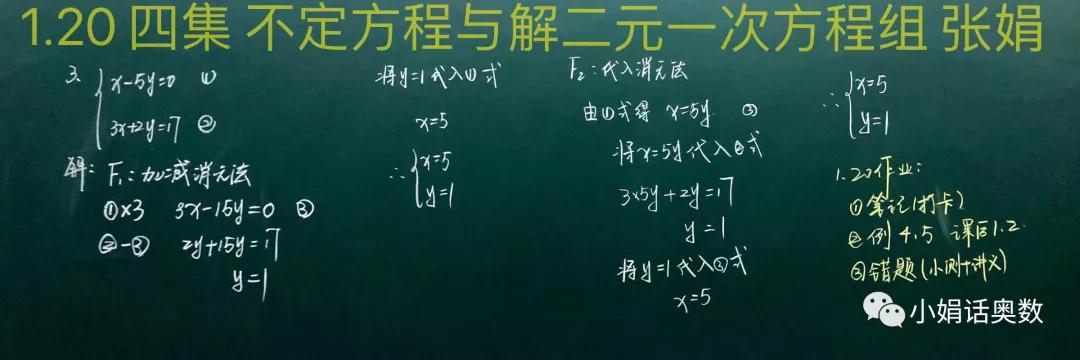 1.20 四集 不定方程与解二元一次方程组 张娟
3、{x-5y=0 ①
3x+2y=17 ②
解: F₁:加减消元法
①×3 3x-15y=0 ③
②-③ 2y+15y=17
y=1
将y=1代入①式
x=5
∴{x=5
y=1
F₂:代入消元法
由①式得 x=5y ③
将x=5y代入②式
3×5y+2y=17
y=1
将y=1代入③式
x=5
∴{x=5
y=1
1.20作业:
①笔记(打卡)
②例4.5 课后1.2
③错题(小测+讲义)
小娟话奥数